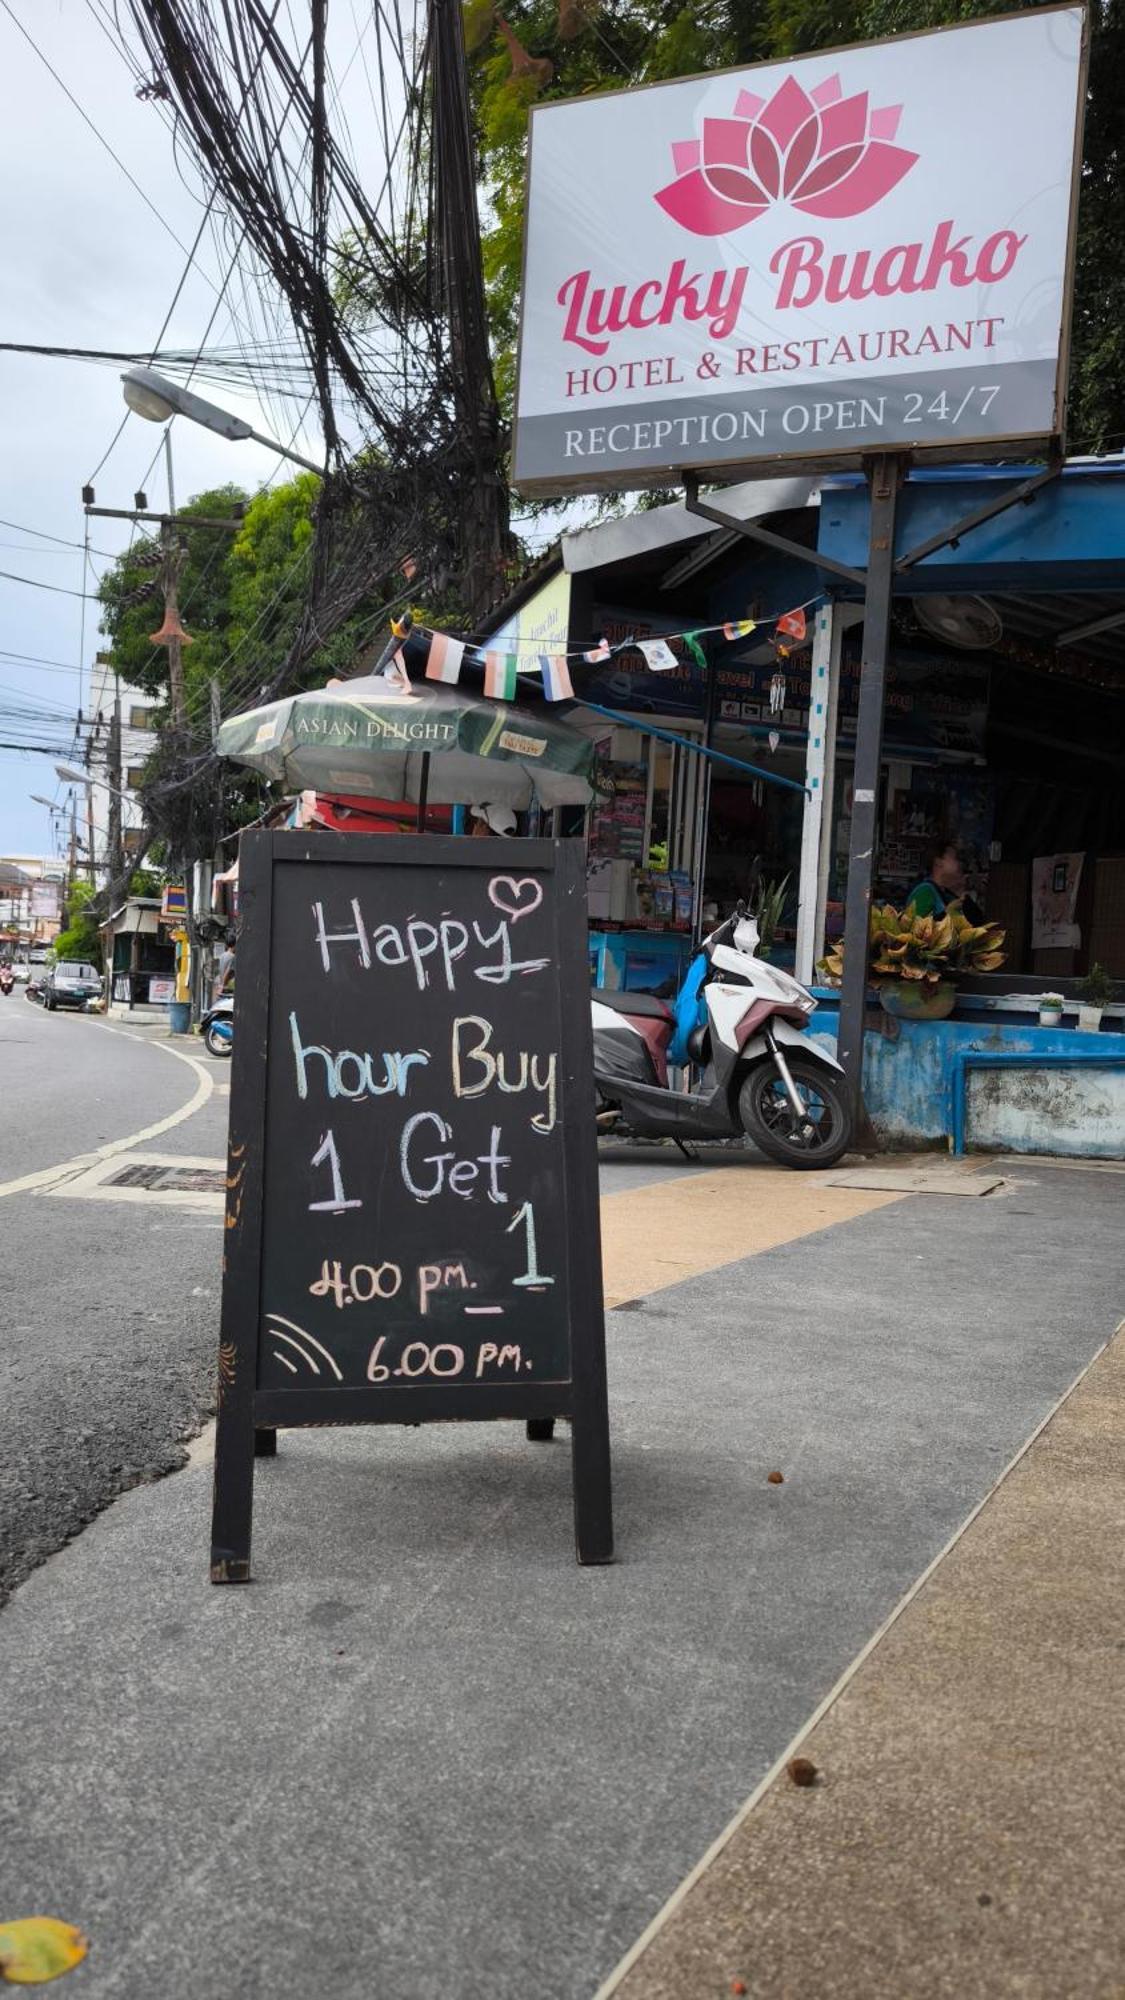 Lucky Buako
HOTEL & RESTAURANT
RECEPTION OPEN 24/7
ASIAN DELIGHT
Happy
hour Buy
1 Get
1
4.00 pm. _
6.00 pm.